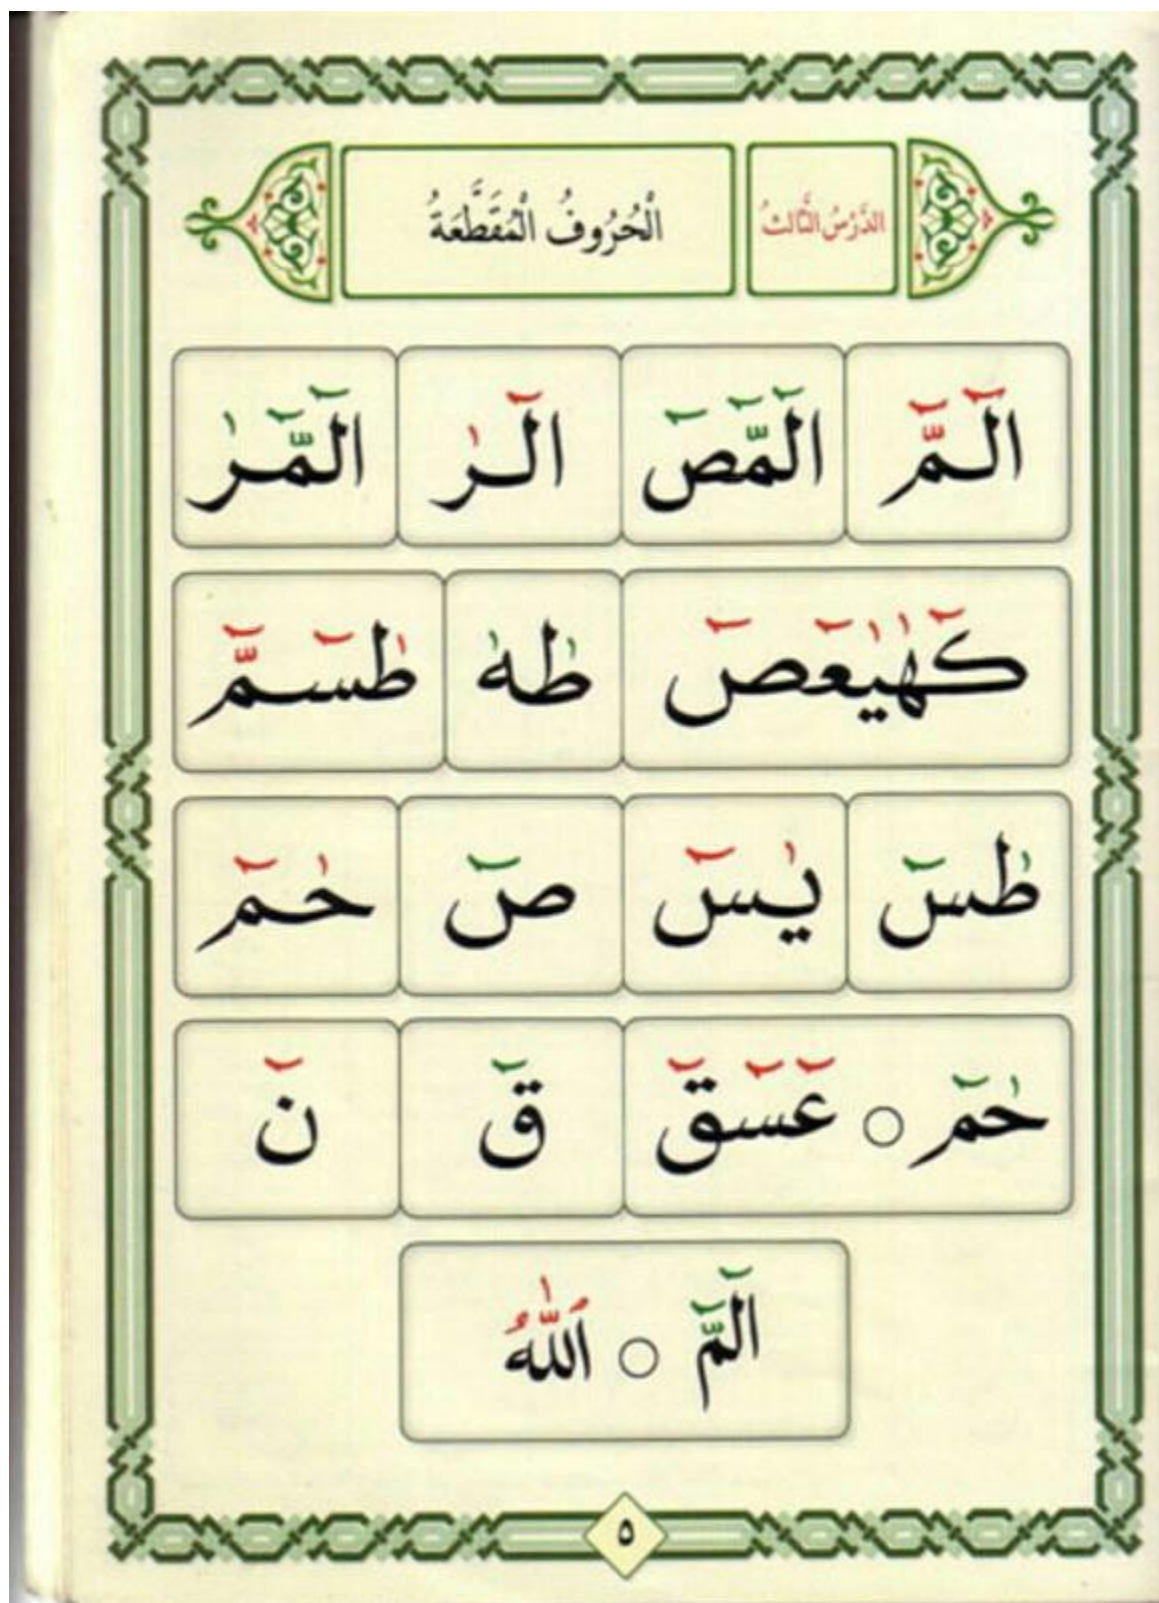 الدَّرْسُ الثَّالِثُ الْحُرُوفُ الْمُقَطَّعَةُ
الٓمّٓ الٓمّٓصٓ الٓرٰ الٓمّٓرٰ
كٓهٰيٰعٓصٓ طٰهٰ طٰسٓمّٓ
طٰسٓ يٰسٓ صٓ حٰمٓ
حٰمٓ ○ عٓسٓقٓ قٓ نٓ
الٓمّٓ ○ اَللّٰهُ
٥